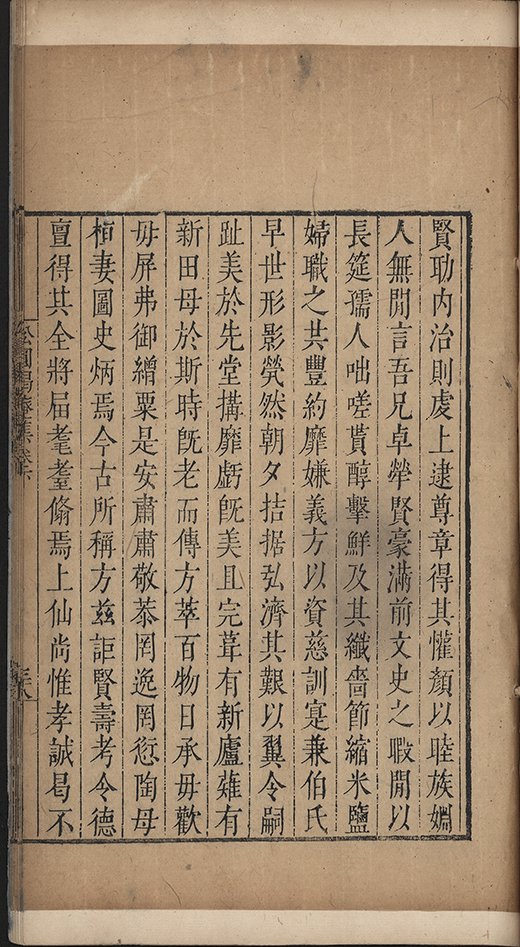 賢助内治則虔上逮尊章得其懽顏以睦族婣
人無閒言吾兄卓犖賢豪滿前文史之暇閒以
長筵孺人咄嗟貰醇擊鮮及其纖嗇節縮米鹽
婦職之共豐約靡嫌義方以資慈訓寔兼伯氏
早世形影煢然朝夕拮据弘濟其艱以翼令嗣
趾美於先堂搆靡虧旣美且完葺有新廬薙有
新田母於斯時旣老而傳方萃百物日承毋歡
毋屏弗御繒粟是安肅肅敬恭罔逸罔愆陶母
桓妻圖史炳焉今古所稱方兹詎賢壽考令德
亶得其全將届耄耋翛焉上仙尚惟孝誠曷不